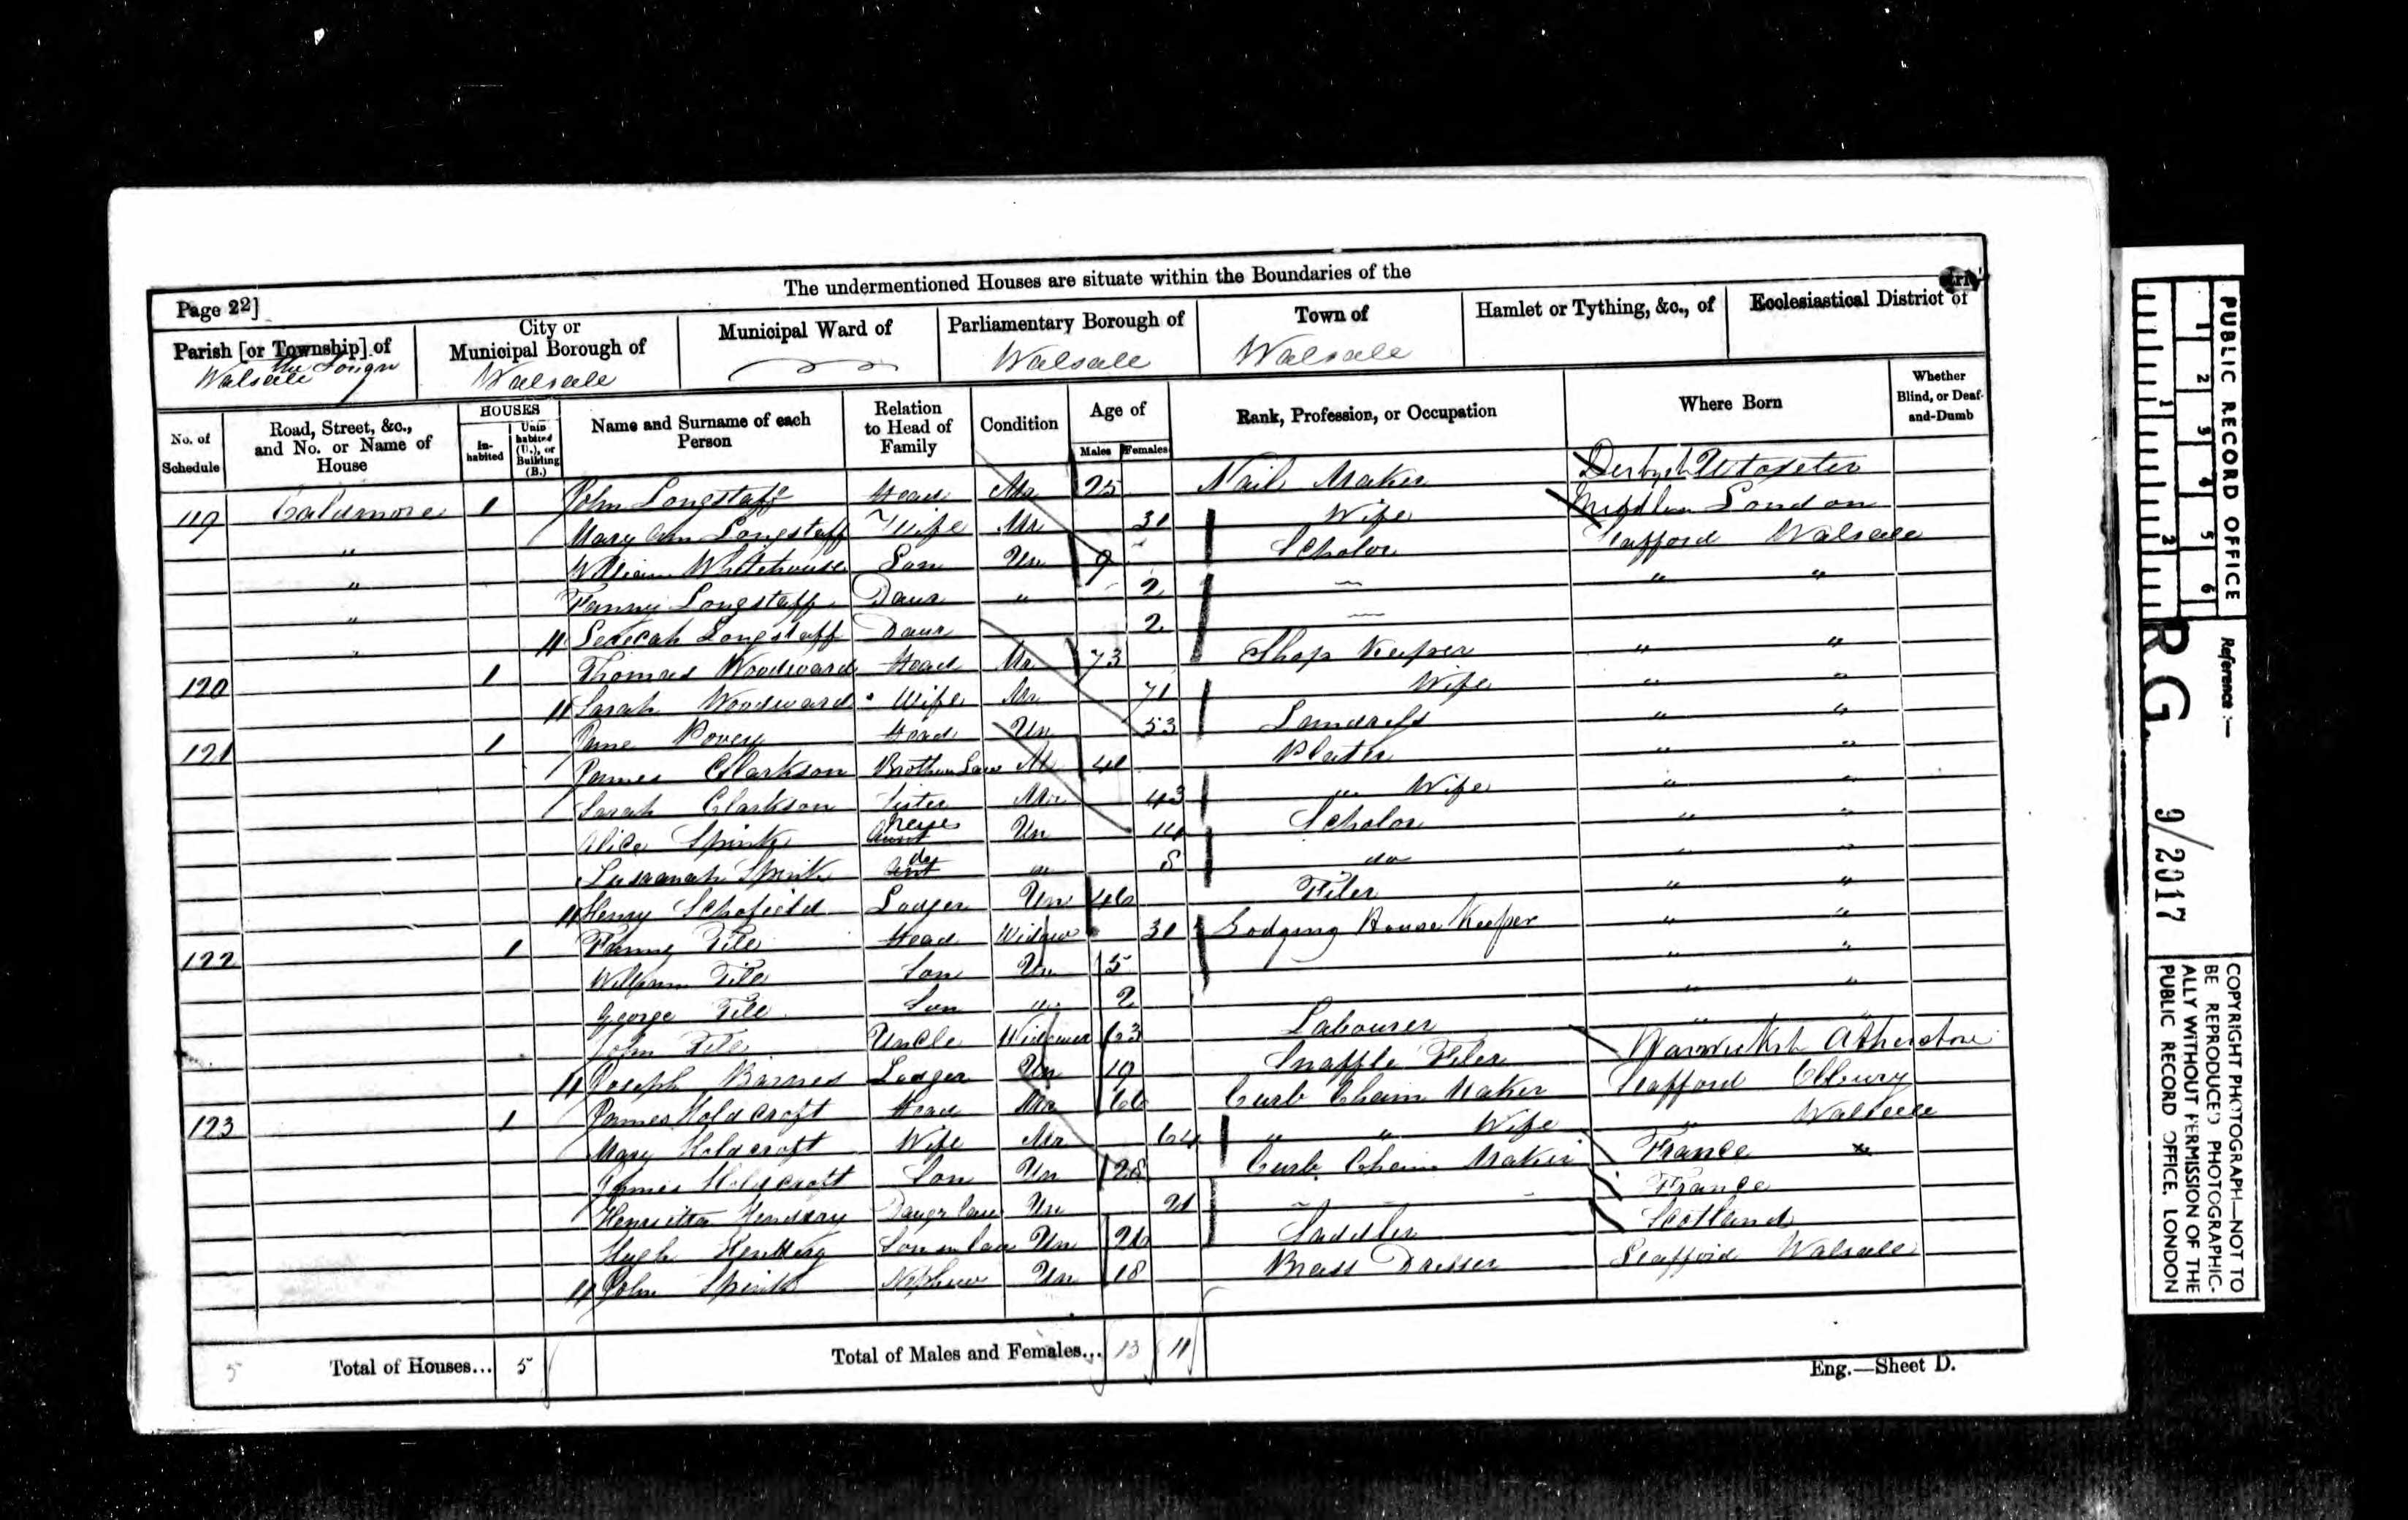 The undermentioned Houses are situate within the Boundaries of the
Page 22]
Parish [or Township] of
Walsall the Foreign
City or Municipal Borough of
Walsall
Municipal Ward of
Parliamentary Borough of
Walsall
Town of
Walsall
Hamlet or Tything, &c., of
Ecclesiastical District of
No. of Schedule
Road, Street, &c., and No. or Name of House
HOUSES
In-habited
Unin-habited (U.), or Building (B.)
Name and Surname of each Person
Relation to Head of Family
Condition
Age of
Males
Females
Rank, Profession, or Occupation
Where Born
Whether Blind, or Deaf-and-Dumb
119 Caldmore 1 John Longstaff Head Mr 25 Nail Maker Derbysh Uttoxeter
" Mary Ann Longstaff Wife Mr 31 Wife Middlesex London
" William Whitehouse Son Un 9 Scholar Stafford Walsall
" Fanny Longstaff Daur " 2 — " "
" Longstaff Daur 2 —
120 1 Thomas Woodward Head Mr 73 Shop Keeper " "
Sarah Woodward Wife Mr 71 Wife " "
121 1 Jane Povey Head Un 53 Laundress " "
James Clarkson Brother Law M 41 Plater " "
Sarah Clarkson Sister Mr 43 " Wife " "
Alice Spink Neice Un 14 Scholar " "
Susannah Spink do " 8 do " "
Henry Schofield Lodger Un 46 Filer " "
122 1 Fanny Tile Head Widow 31 Lodging House Keeper " "
William Tile Son Un 5 " "
George Tile Son " 2 " "
John Tile Uncle Widower 63 Labourer " "
Joseph Barnes Lodger Un 19 Snaffle Filer Warwicksh Atherstone
123 1 James Holdcroft Head Mr 66 Curb Chain Maker Stafford
Mary Holdcroft Wife Mr 64 " " Wife " Walsall
James Holdcroft Son Un 28 Curb Chain Maker France x
Henrietta Hendery Daugr law Un 21 — France
Hugh Hendery Son in law Un 26 Saddler Scotland
John Spink Nephew Un 18 Brass Dresser Stafford Walsall
5 Total of Houses... 5
Total of Males and Females... 13 11
Eng.—Sheet D.
PUBLIC RECORD OFFICE
1 2 3 4 5 6
1 2
Reference :—
R.G. 9/2017
COPYRIGHT PHOTOGRAPH—NOT TO
BE REPRODUCED PHOTOGRAPHIC-
ALLY WITHOUT PERMISSION OF THE
PUBLIC RECORD OFFICE, LONDON